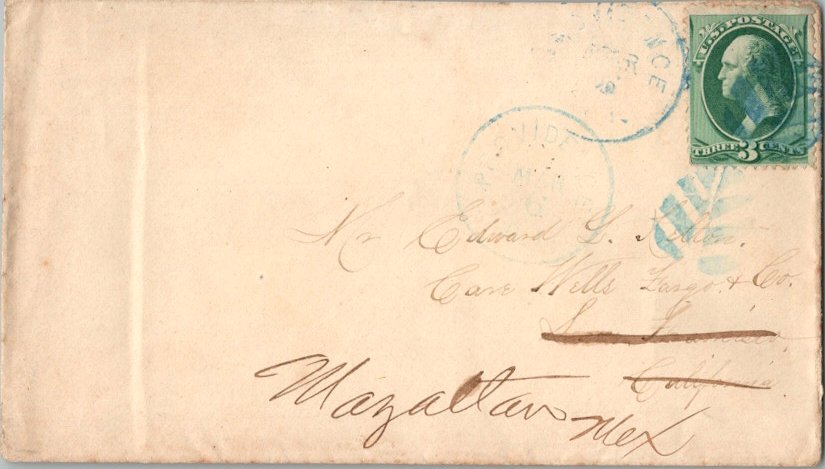 U.S. POSTAGE
THREE 3 CENTS
PROVIDENCE
MAR
PROVIDE
MAR
Mr Edward L.
Care Wells Fargo & Co.
San Francisco,
California
Mazatlan
Mex